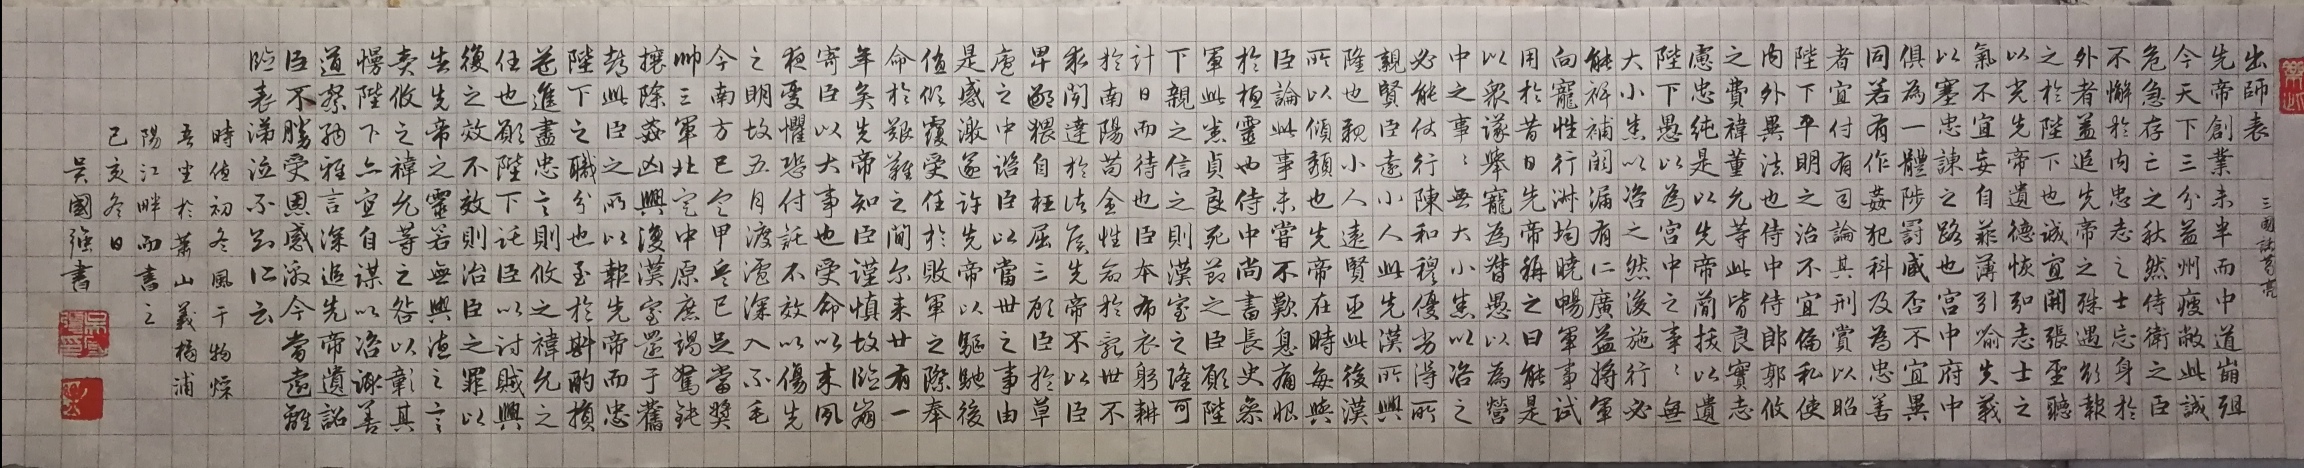 出師表 三國諸葛亮
先帝創業未半而中道崩殂
今天下三分益州疲敝此誠
危急存亡之秋然侍衛之臣
不懈於內忠志之士忘身於
外者蓋追先帝之殊遇欲報
之於陛下也誠宜開張聖聽
以光先帝遺德恢弘志士之
氣不宜妄自菲薄引喻失義
以塞忠諫之路也宮中府中
俱為一體陟罰臧否不宜異
同若有作姦犯科及為忠善
者宜付有司論其刑賞以昭
陛下平明之治不宜偏私使
內外異法也侍中侍郎郭攸
之費禕董允等此皆良實志
慮忠純是以先帝簡拔以遺
陛下愚以為宮中之事〻無
大小悉以咨之然後施行必
能裨補闕漏有仁廣益將軍
向寵性行淑均曉暢軍事試
用於昔日先帝稱之曰能是
以眾議舉寵為督愚以為營
中之事〻無大小悉以咨之
必能使行陳和穆優劣得所
親賢臣遠小人此先漢所興
隆也親小人遠賢臣此後漢
所以傾頹也先帝在時每與
臣論此事未嘗不歎息痛恨
於桓靈也侍中尚書長史參
軍此悉貞良死節之臣願陛
下親之信之則漢室之隆可
計日而待也臣本布衣躬耕
於南陽苟全性命於亂世不
求聞達於諸侯先帝不以臣
卑鄙猥自枉屈三顧臣於草
廬之中諮臣以當世之事由
是感激遂許先帝以驅馳後
值傾覆受任於敗軍之際奉
命於艱難之間尔来廿有一
年矣先帝知臣謹慎故臨崩
寄臣以大事也受命以來夙
夜憂懼恐付託不效以傷先
之明故五月渡瀘深入不毛
今南方已定甲兵已足當獎
帥三軍北定中原庶竭駑鈍
攘除姦凶興復漢室還于舊
都此臣之所以報先帝而忠
陛下之職分也至於斟酌損
益進盡忠言則攸之禕允之
任也願陛下託臣以討賊興
復之效不效則治臣之罪以
告先帝之靈若無興德之言
責攸之禕允等之咎以彰其
慢陛下亦宜自謀以咨諏善
道察納雅言深追先帝遺詔
臣不勝受恩感激今當遠離
臨表涕泣不知所云
時值初冬風干物燥
吾坐於蕭山義橋浦
陽江畔而書之
己亥冬日
吳國強書